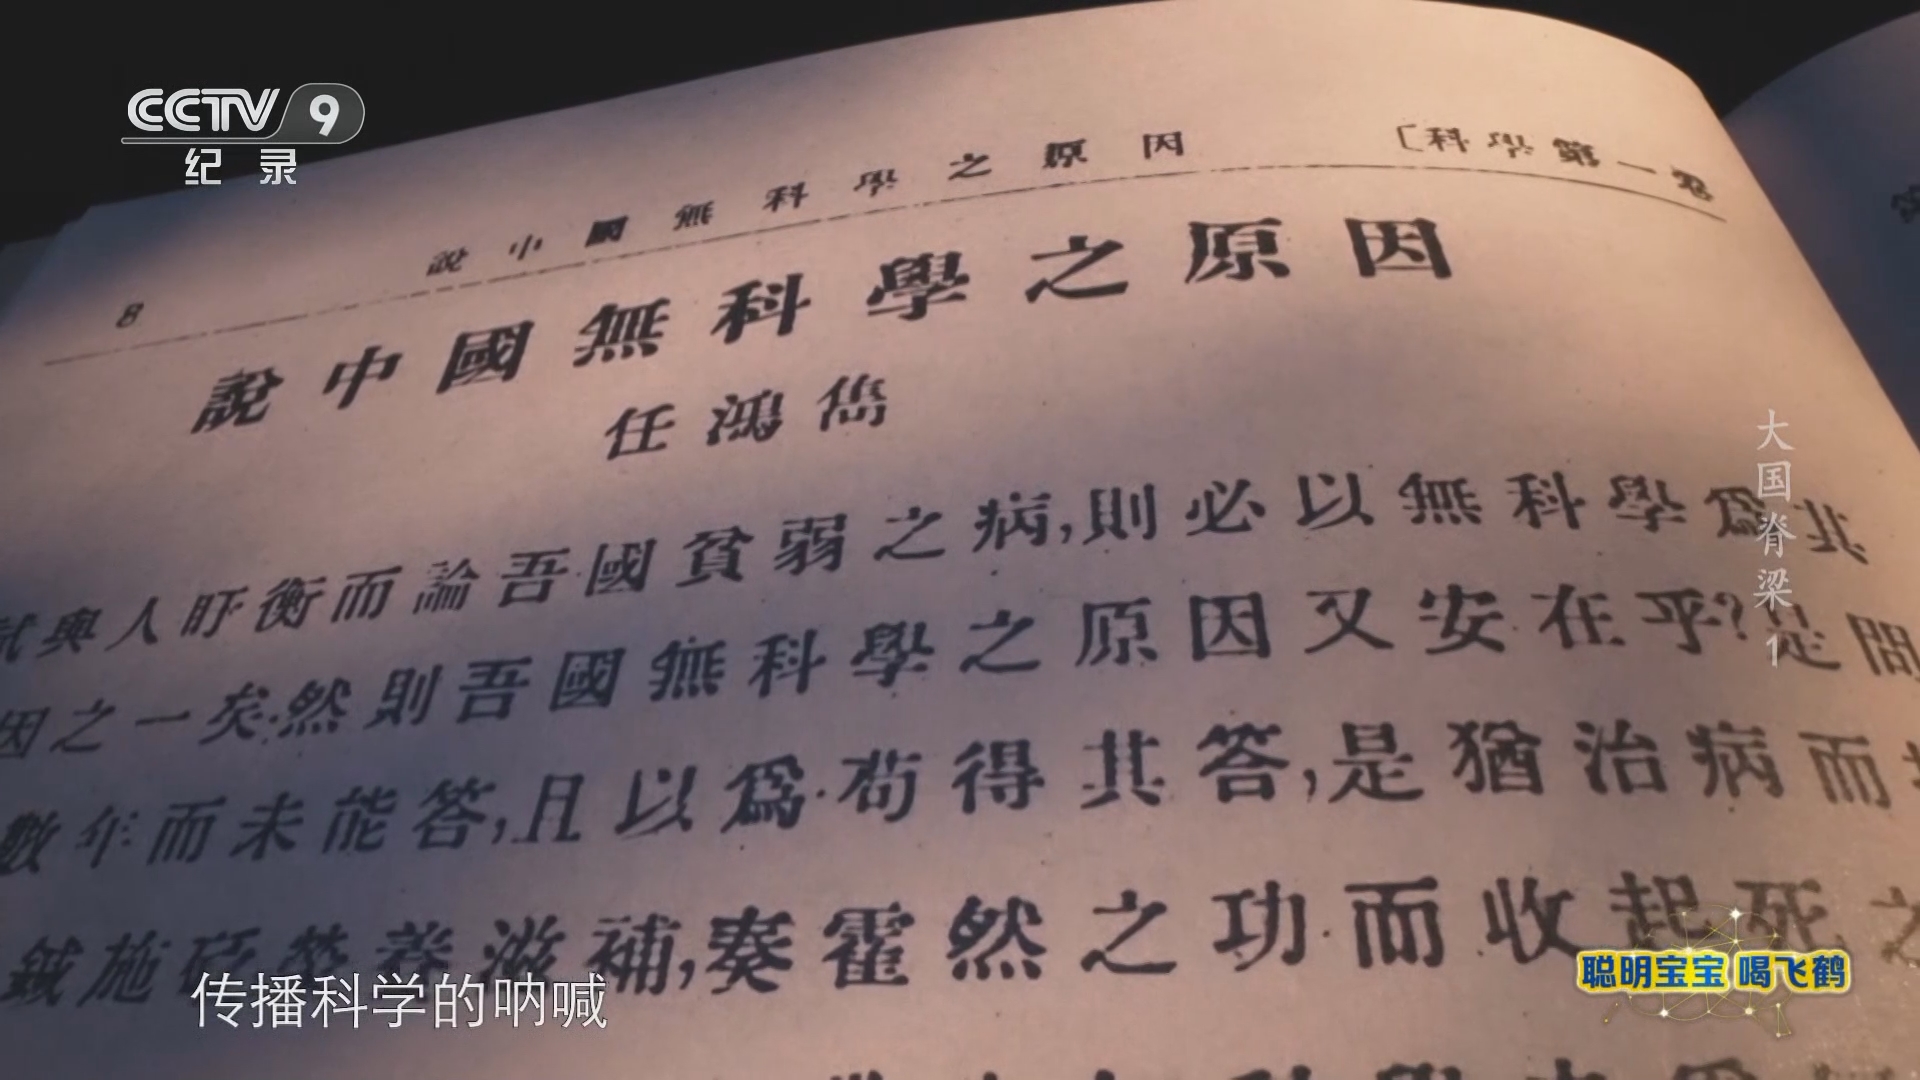 CCTV 9
纪录
8
說中國無科學之原因
[科學第一卷
說中國無科學之原因
任鴻雋
試與人盱衡而論吾國貧弱之病,則必以無科學爲其
因之一矣.然則吾國無科學之原因又安在乎?是問
數年而未能答,且以爲苟得其答,是猶治病而
鍼施砭榮養滋補,奏霍然之功而收起死之
大国脊梁 1
聪明宝宝 喝飞鹤
传播科学的呐喊